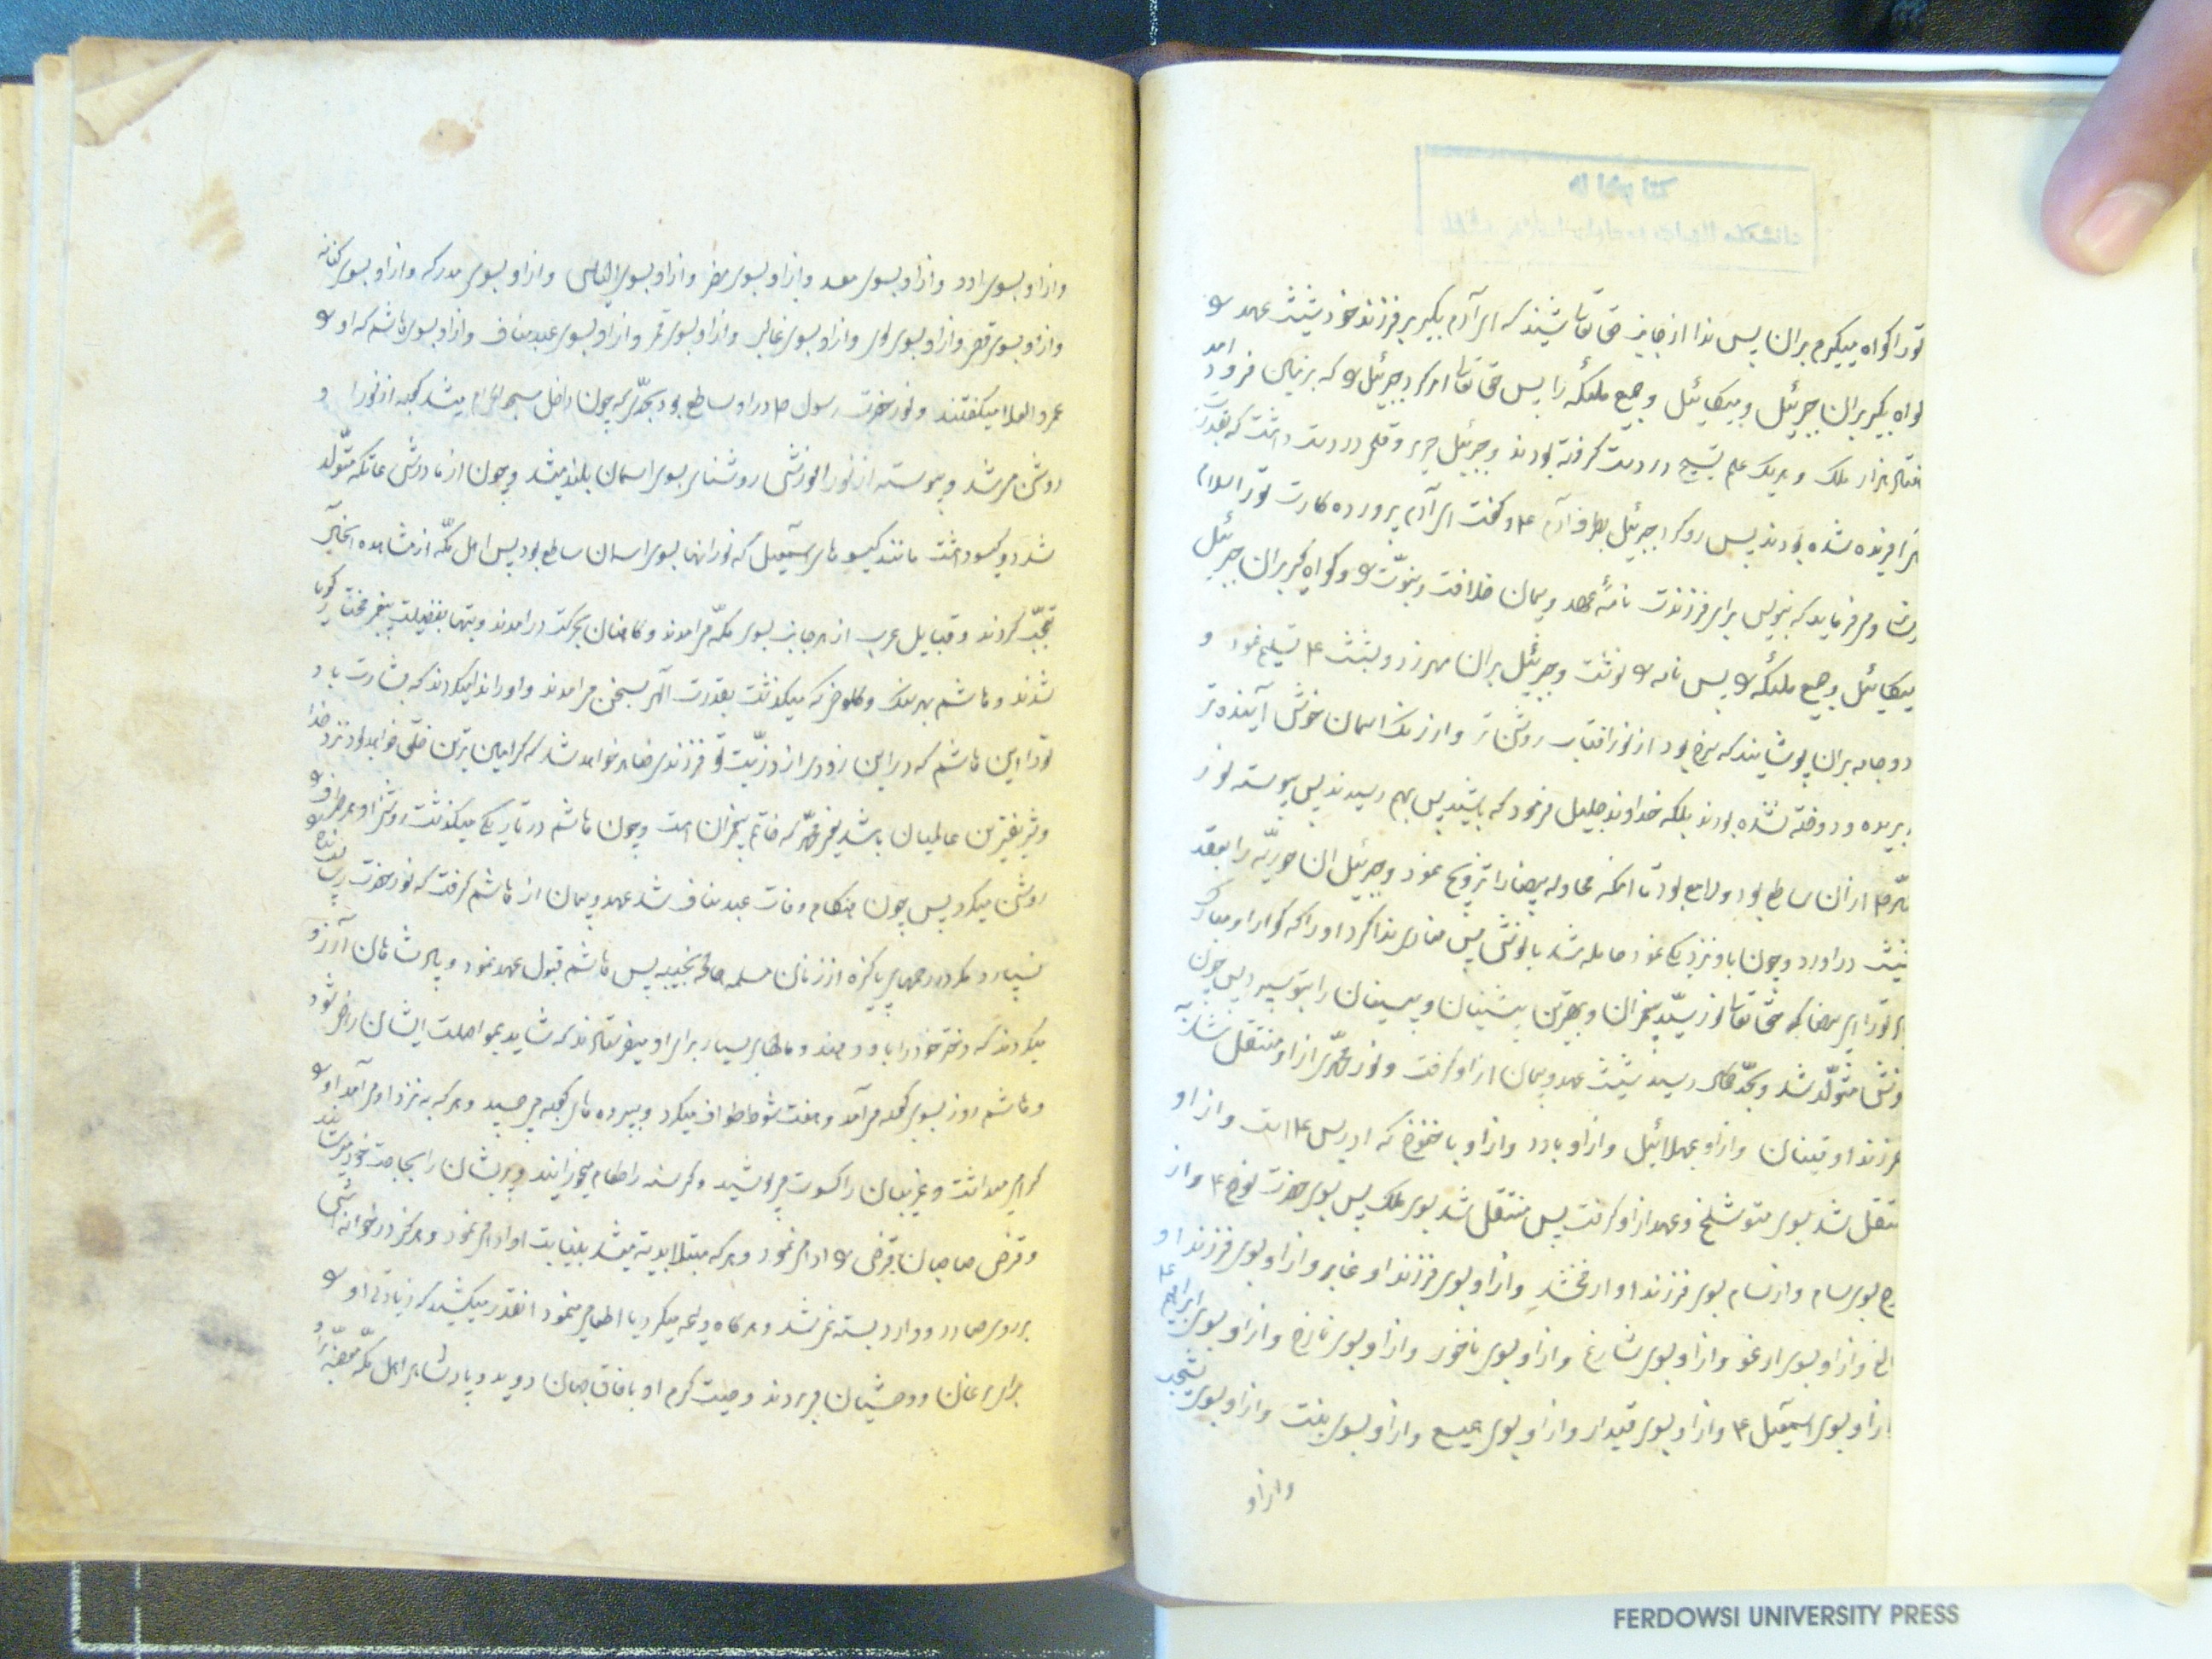 تو را گواه میگیرم بر ان پس ندا از جانب حق تعا شنید که ای آدم بگیر بر فرزند خود شیث عهد و
گواه بگیر بران جبرئیل و میکائیل و جمیع ملئکه را پس حق تعا امر کرد جبرئیل را که بزمین فرود امد
هفتاد هزار ملک و هر یک علم تسبیح در دست گرفته بودند و جبرئیل حریر و قلمی در دست داشت که بقدرت
افریده شده بودند پس رو کرد جبرئیل بطرف آدم ع و گفت ای آدم پروردگارت تو را سلام
میرساند و میفرماید که بنویس برای فرزندت نامهٔ عهد و پیمان خلافت و نبوّت و گواه گیر بران جبرئیل
میکائیل و جمیع ملئکه را پس نامه را نوشت و جبرئیل بران مهر زد و بشیث ع تسلیم نمود و
دو جامه بران پوشانیدند که سرخ بود از نور افتاب روشن تر و از رنگ اسمان خوش آینده تر
بریده و دوخته نشده بودند بلکه خداوند جلیل فرمود که باشید پس بهم رسیدند پس پیوسته نور
از ان ساطع بود و لامع بود تا انکه محاوله بیضا را تزویج نمود و جبرئیل ان حوریّه را بعقد
شیث دراورد و چون باو نزدیکی نمود حامله شد بانوش پس منادی ندا کرد او را که گوارا و مبارک
تو را ای بیضا که حق تعا نور سیّد پیغمبران و بهترین پیشینیان و پسینیان را بتو سپرد پس چون
انوش متولّد شد و بحدّ کمال رسید شیث عهد و پیمان از او گرفت و نور محمّدی از او منتقل شد به
فرزند او قینان و از او بمهلائیل و از او بادد و از او باخنوخ که ادریس ع است و از او
منتقل شد بسوی متوشلخ و عهد از او گرفت پس منتقل شد بسوی لمک پس بسوی حضرت نوح ع و از
نوح بسوی سام و از سام بسوی فرزند او ارفخشد و از او بسوی فرزند او غابر و از او بسوی فرزند او
و از او بسوی ارغو و از او بسوی شارغ و از او بسوی ناخور و از او بسوی تارخ و از او بسوی ابراهیم ع
و از او بسوی اسمعیل ع و از او بسوی قیدار و از او بسوی همیسع و از او بسوی بنت و از او بسوی یشجب
و از او
و از او بسوی ادد و از او بسوی معد و از او بسوی مضر و از او بسوی الیاس و از او بسوی مدرکه و از او بسوی کنانه
و از او بسوی قصی و از او بسوی لوی و از او بسوی غالب و از او بسوی فهر و از او بسوی عبد مناف و از او بسوی هاشم که او را
عمرو العلا میگفتند و نور حضرت رسول ص در او ساطع بود بحدّی که چون داخل مسجد الحرام میشد کعبه از نور او
روشن میشد و پیوسته از نور انورش روشنایی بسوی اسمان بلند میشد و چون از مادرش عاتکه متولّد
شد دو گیسو داشت مانند گیسوهای اسمعیل که نور انها بسوی اسمان ساطع بود پس اهل مکّه از مشاهده انحال
تعجّب کردند و قبایل عرب از هر جانب بسوی مکّه میامدند و کاهنان بحرکت درامدند و بتها بفضیلت پیغمبر مختار گویا
شدند و هاشم بهر سنگ و کلوخی که میگذشت بقدرت الهی بسخن میامدند و او را ندا میکردند که بشارت باد
تو را این هاشم که در این زودی از ذرّیّت تو فرزندی ظاهر خواهد شد که گرامی ترین خلق خواهد بود نزد خدا
و شریفترین عالمیان باشد یعنی محمّد که خاتم پیغمبران است و چون هاشم در تاریکی میگذشت
روشن میکرد پس چون هنگام وفات عبد مناف شد عهد و پیمان از هاشم گرفت که نور حضرت رسالت را
نسپارد مگر در رحمهای پاکیزه از زنان مسلمه صالحه نجیبه پس هاشم قبول عهد نمود و پادشاهان آرزو
میکردند که دختر خود را باو دهند و مالهای بسیار برای او میفرستادند که شاید بمواصلت ایشان راضی شود
و هاشم هر روز بسوی کعبه میآمد و هفت شوط طواف میکرد و بپرده های کعبه میچسبید و هر که به نزد او میآمد او را
گرامی میداشت و عریانان را کسوت میپوشید و گرسنه را طعام میخورانید و پریشان را بحاجت خود میرسانید
و قرض صاحبان قرض را ادا مینمود و هر که مبتلا بدیه میشد بنیابت او ادا مینمود و هرگز در خانه اش
بر روی صادر و وارد بسته نمیشد و هر گاه ولیمه میکرد یا اطعامی مینمود انقدر میکشید که زیادتی او را
برای مرغان و وحشیان میبردند و صیت کرم او بافاق جهان دوید و پادشاهی اهل مکّه
FERDOWSI UNIVERSITY PRESS